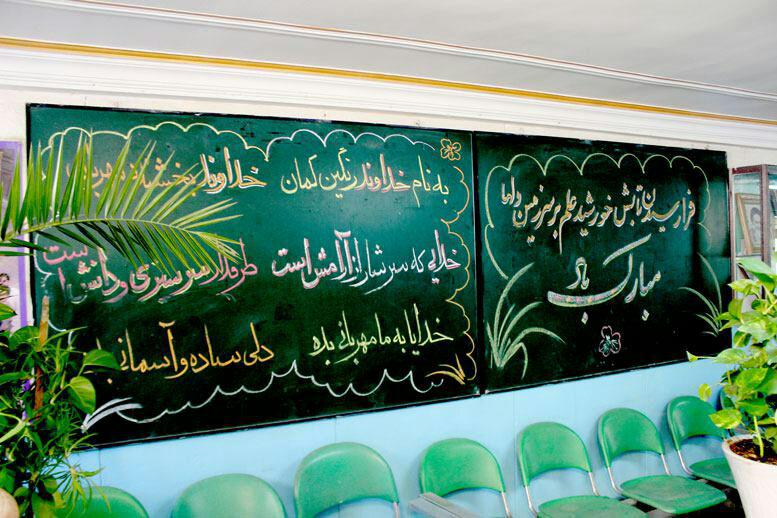 به نام خداوند رنگین کمان خداوند بخشنده مهربان
خدایی که سرشار از آرامش است طرفدار سرسبزی و دانش است
خدایا به ما مهربانی بده دلی ساده و آسمانی
فرا رسیدن تابش خورشید علم بر سرزمین دلها
مبارک باد